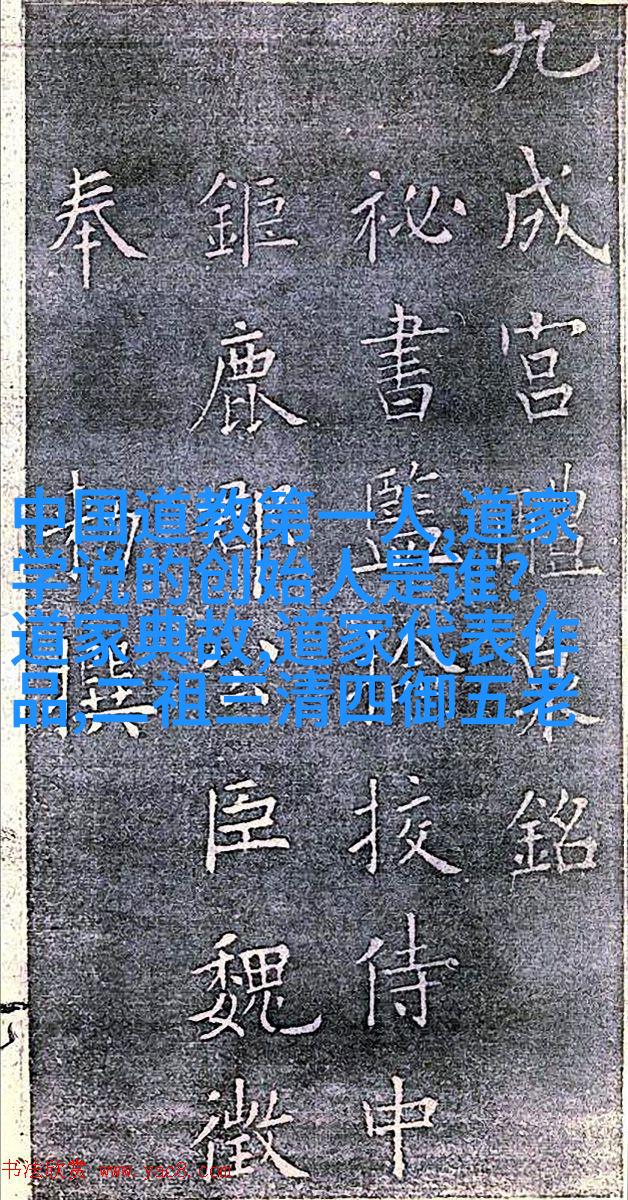 九成宮醴泉銘
祕書監檢挍侍中
鉅鹿郡公臣魏徵
奉勑撰
中国道教第一人,道家
学说的创始人是谁?,
道家典故,道家代表作
品,二祖三清四御五老
书法欣赏 www.yac8.com